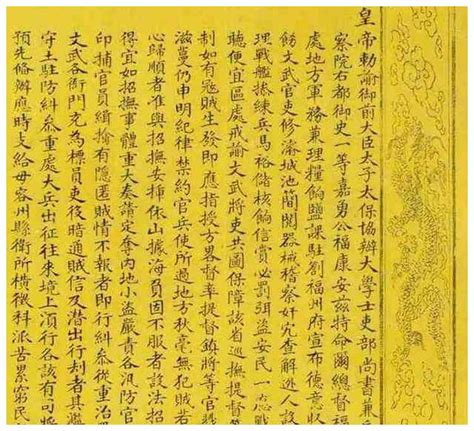 皇帝勅諭御前大臣太子太保協辦大學士吏部尚書兼
察院右都御史一等嘉勇公福康安茲特命爾總督
處地方軍務兼理糧餉鹽課駐劄福州府宣布德意
飭文武官吏修濬城池簡閱器械稽察奸宄查解逃人
理戰艦操練兵馬裕儲核餉信賞必罰弭盜安民一應戰
聽便宜區處戒諭文武將吏共圖保障該省巡撫提督
制如有寇賊生發即應指授方畧督率提鎮將等官
滋蔓仍申明紀律禁約官兵使所過地方秋毫無犯賊若
心歸順者准與招撫安揷依山據海員固不服者設法招
得宜如招撫事體重大奏請定奪內地小盜嚴責各汛防官
印捕官員緝掄有隱匿賊情不報者即行糾參從重治罪
文武各衙門充為標員吏役暗通賊信及潛出行刦者其
守土駐防糾參重處大兵出征往來境上湏行各該有司
預先俻辦應時支給毋容州縣衛所橫徵科派苦累窮民